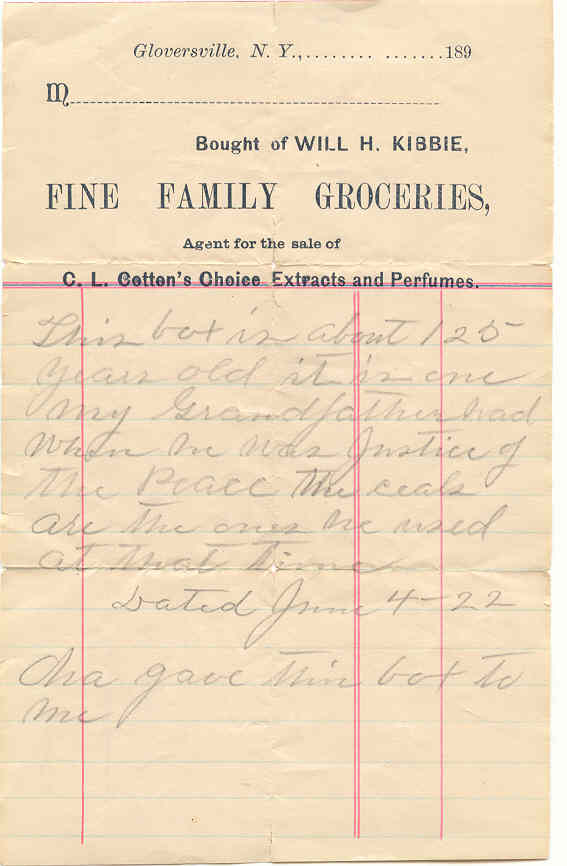 Gloversville, N. Y.,........ .......189
M
Bought of WILL H. KIBBIE,
FINE FAMILY GROCERIES,
Agent for the sale of
C. L. Cotton's Choice Extracts and Perfumes.
This box is about 125
years old it is one
my Grandfather had
when he was Justice of
the Peace the ceals
are the ones he used
at that time
Dated June 4-22
gave this box to
me